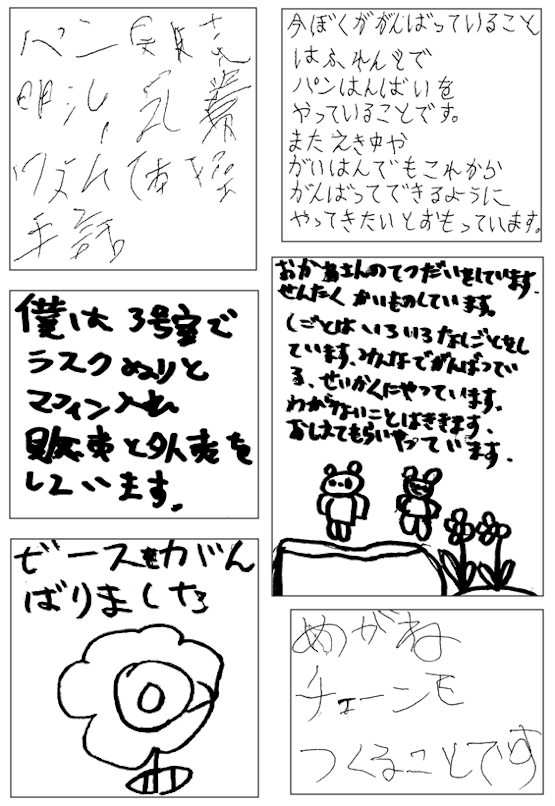 パン販売
明治,乳業
リズム体操
手話
今ぼくががんばっていること
はふれんどで
パンはんばいを
やっていることです。
またえき中や
がいはんでもこれから
がんばってできるように
やってきたいとおもっています。
僕は3号室で
ラスクぬりと
マフィン入れ
販売と外売を
しています。
おかあさんのてつだいをしています.
せんたくかいものしています。
しごとはいろいろなしごとをし
ています、みんなでがんばってい
る、せいかくにやっています.
わからないことはききます.
おしえてもらいやっています.
ビースもがん
ばりました
めがね
チェーンを
つくることです